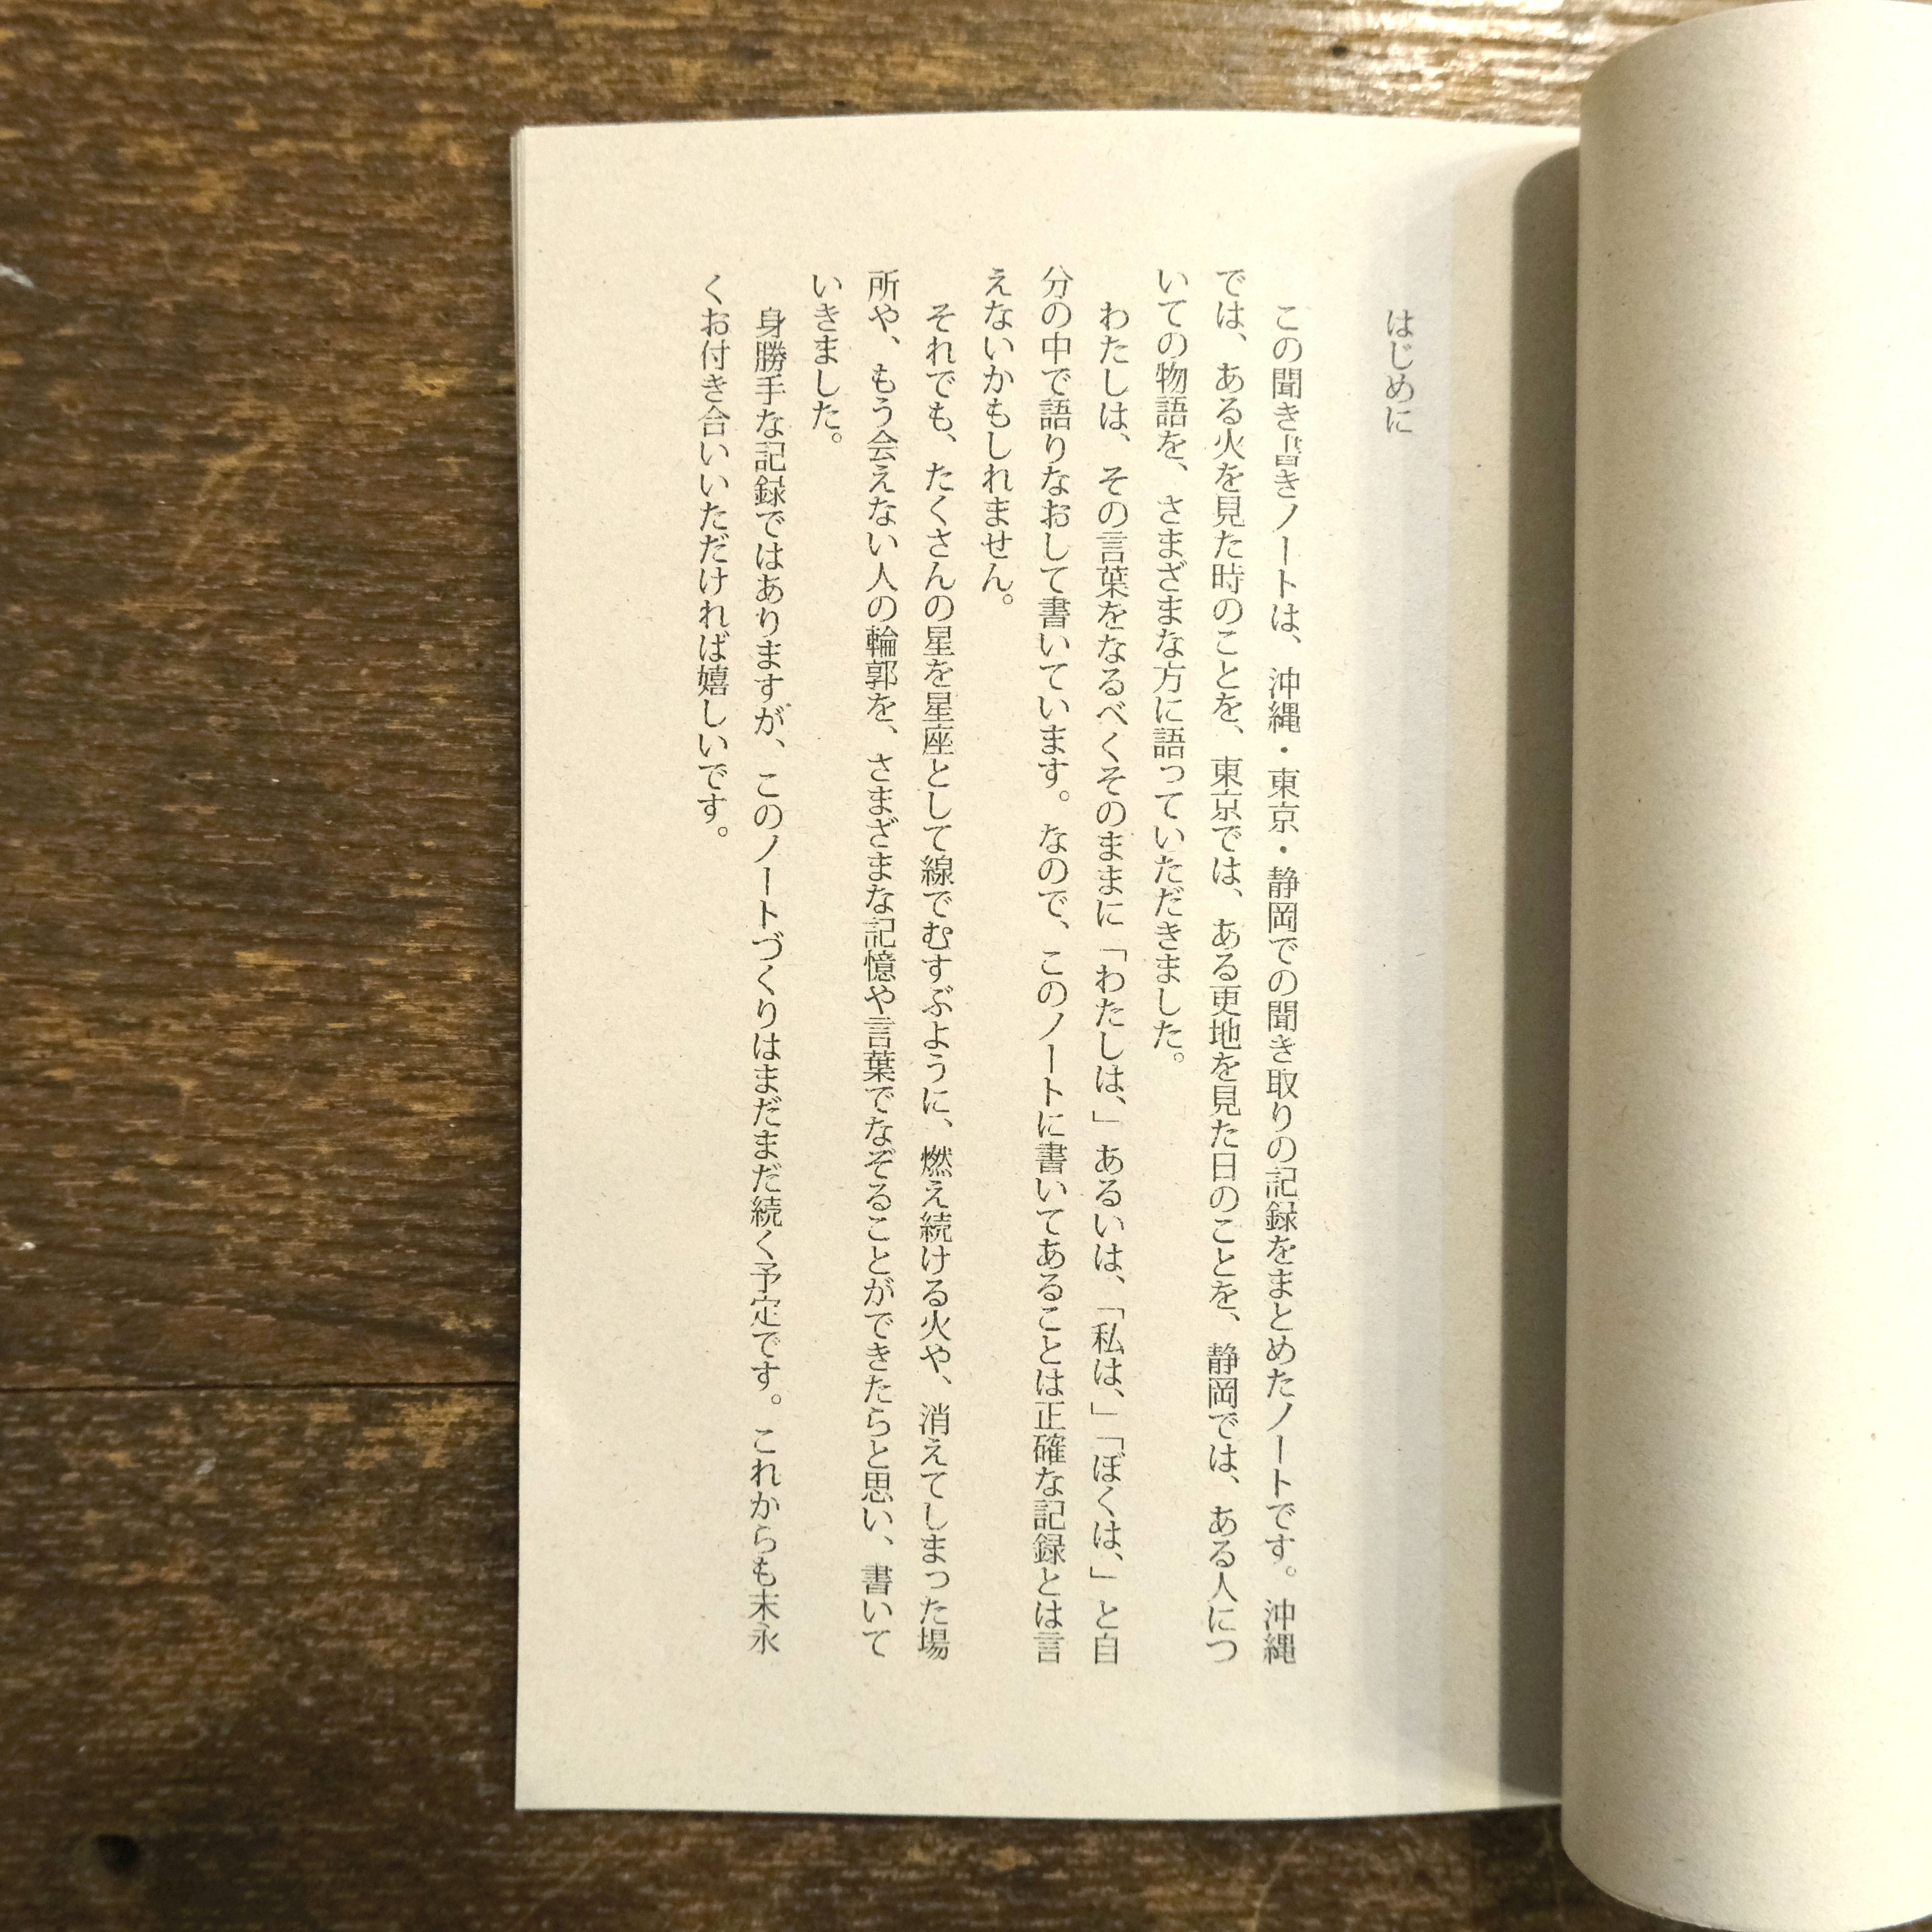 はじめに
この聞き書きノートは、沖縄・東京・静岡での聞き取りの記録をまとめたノートです。沖縄
では、ある火を見た時のことを、東京では、ある更地を見た日のことを、静岡では、ある人につ
いての物語を、さまざまな方に語っていただきました。
わたしは、その言葉をなるべくそのままに「わたしは、」あるいは、「私は、」「ぼくは、」と自
分の中で語りなおして書いています。なので、このノートに書いてあることは正確な記録とは言
えないかもしれません。
それでも、たくさんの星を星座として線でむすぶように、燃え続ける火や、消えてしまった場
所や、もう会えない人の輪郭を、さまざまな記憶や言葉でなぞることができたらと思い、書いて
いきました。
身勝手な記録ではありますが、このノートづくりはまだまだ続く予定です。これからも末永
くお付き合いいただければ嬉しいです。